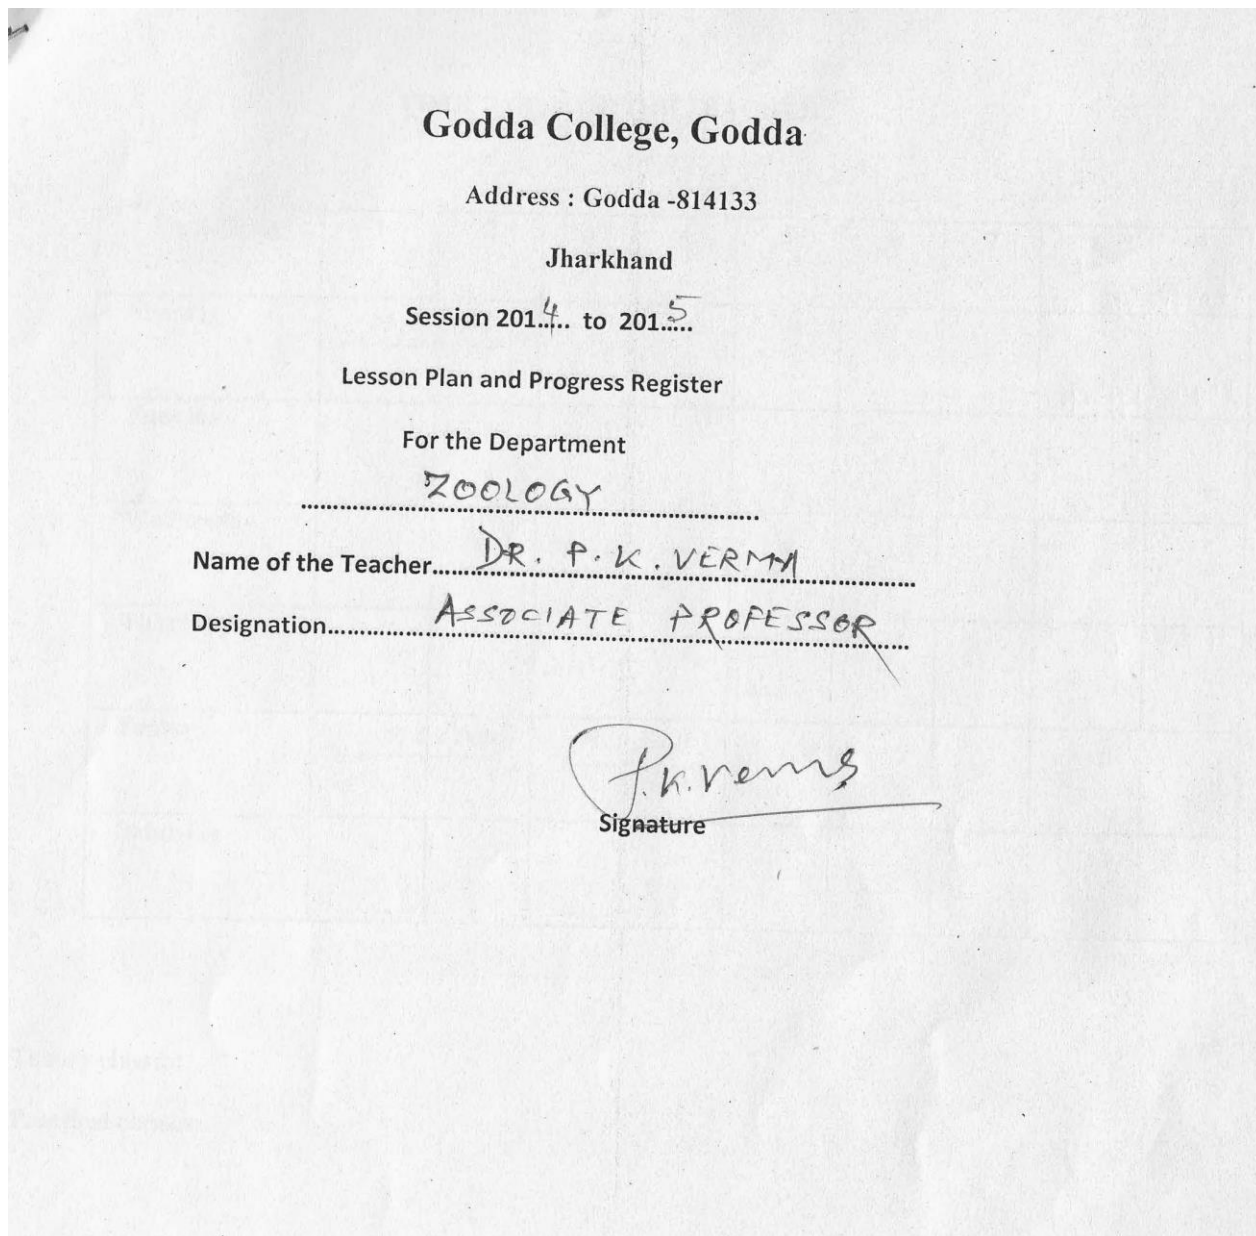 Godda College, Godda
Address : Godda -814133
Jharkhand
Session 201.4... to 201.5....
Lesson Plan and Progress Register
For the Department
ZOOLOGY
Name of the Teacher......DR. P. K. VERMA
Designation............ASSOCIATE PROFESSOR
P.K.Verma
Signature